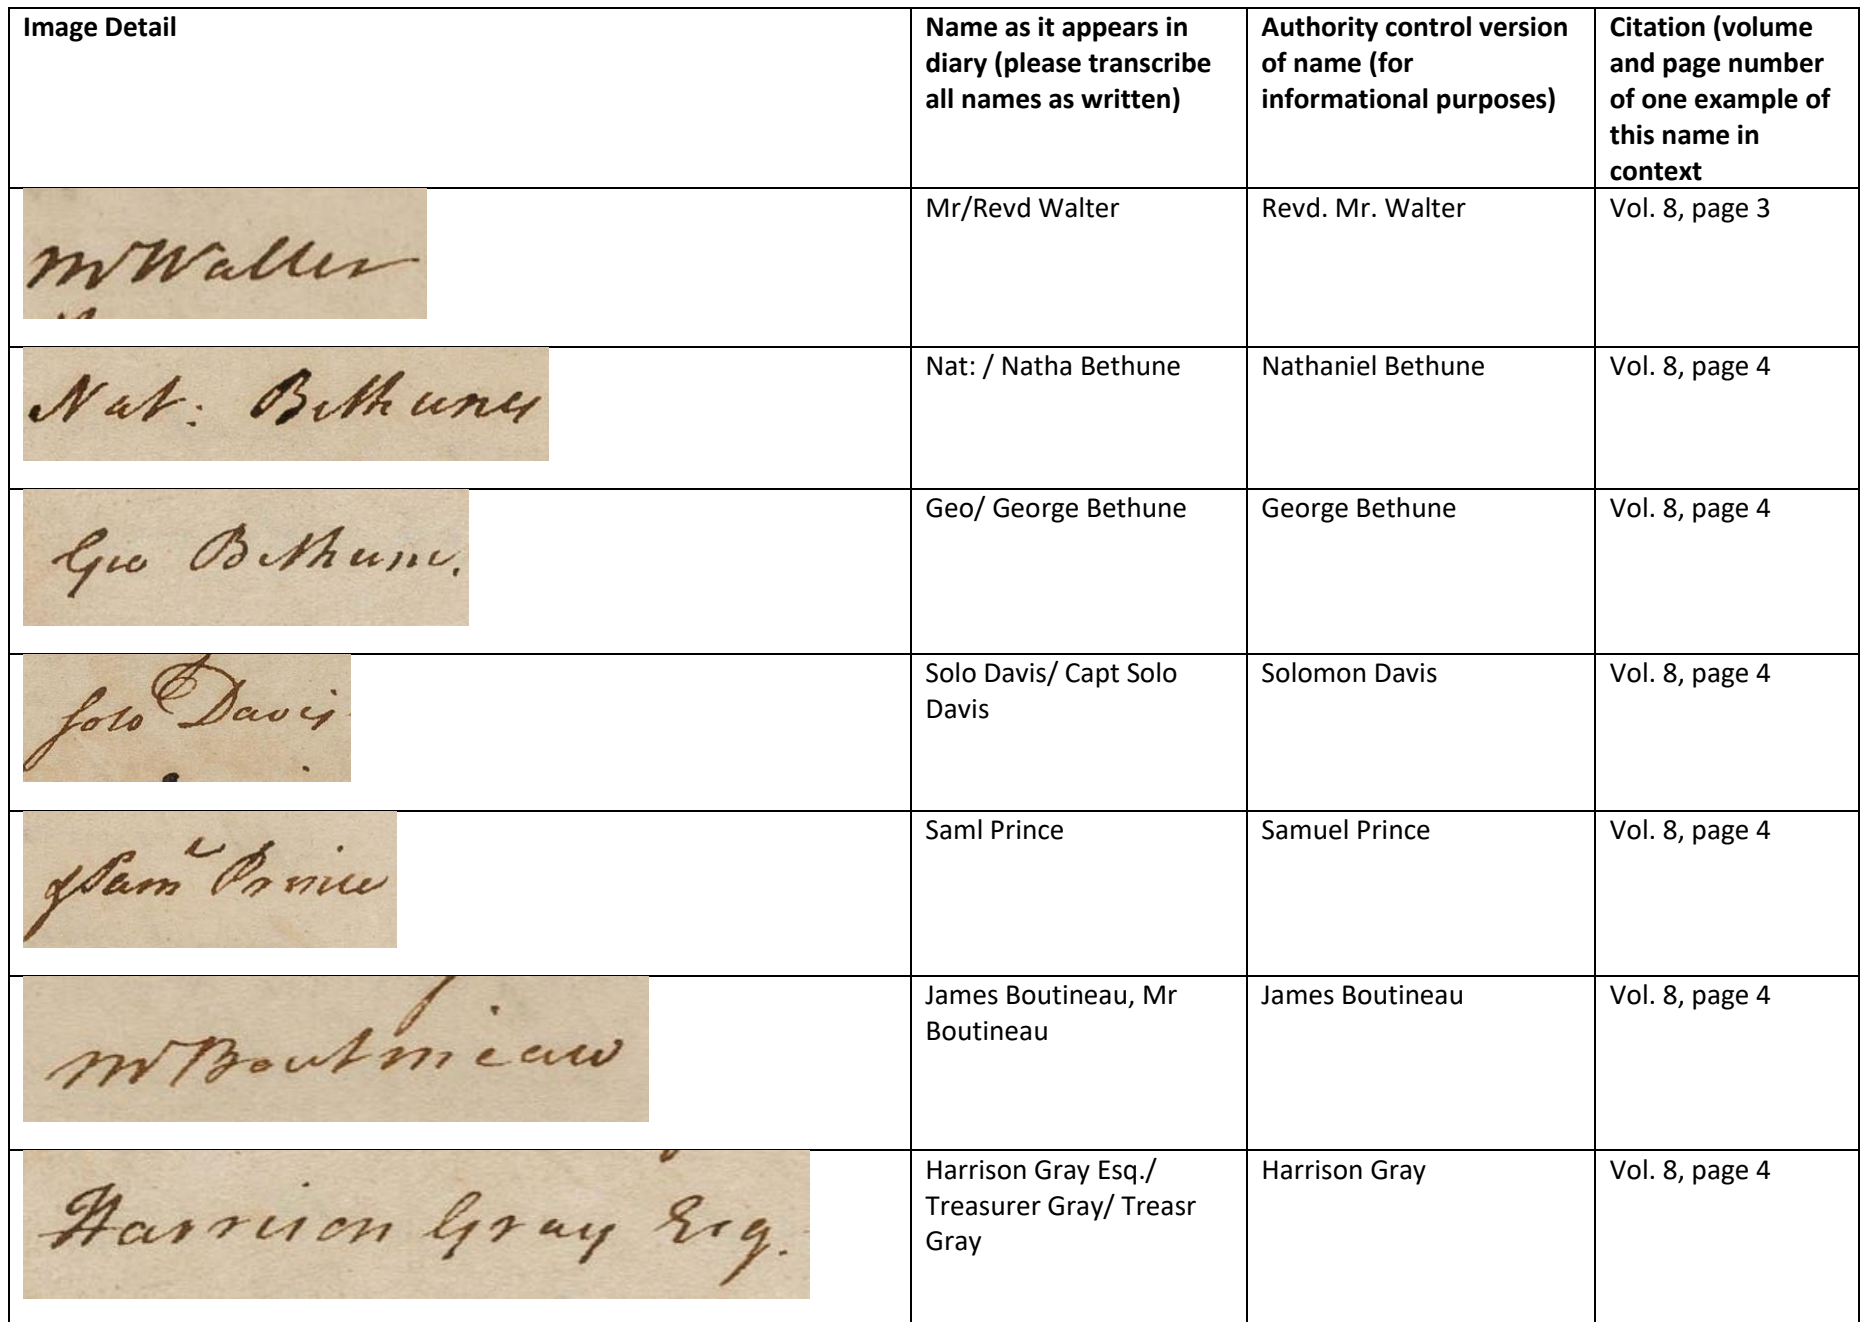 Image Detail
Name as it appears in
diary (please transcribe
all names as written)
Authority control version
of name (for
informational purposes)
Citation (volume
and page number
of one example of
this name in
context
Mr Walter
Mr/Revd Walter
Revd. Mr. Walter
Vol. 8, page 3
Nat: Bethune
Nat: / Natha Bethune
Nathaniel Bethune
Vol. 8, page 4
Geo Bethune.
Geo/ George Bethune
George Bethune
Vol. 8, page 4
Solo Davis
Solo Davis/ Capt Solo
Davis
Solomon Davis
Vol. 8, page 4
Saml Prince
Saml Prince
Samuel Prince
Vol. 8, page 4
Mr Boutineau
James Boutineau, Mr
Boutineau
James Boutineau
Vol. 8, page 4
Harrison Gray Esq.
Harrison Gray Esq./
Treasurer Gray/ Treasr
Gray
Harrison Gray
Vol. 8, page 4